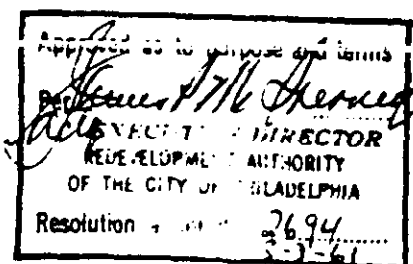 Approved as to purpose and terms
EXECUTIVE DIRECTOR
REDEVELOPMENT AUTHORITY
OF THE CITY OF PHILADELPHIA
Resolution 2694